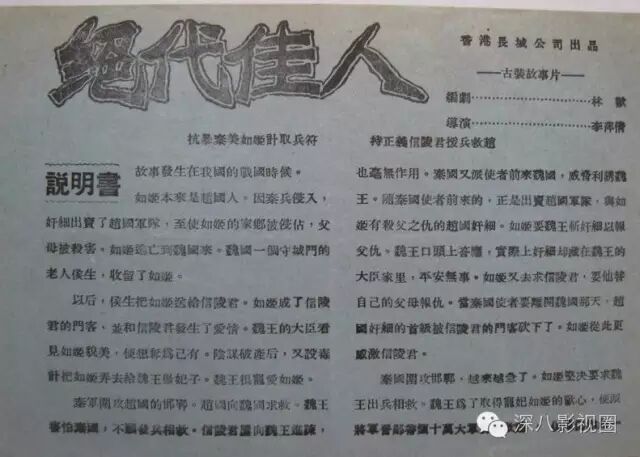 絕代佳人
香港長城公司出品
——古裝故事片——
編劇………………林歡
導演………………李萍倩
抗暴秦美如姬計取兵符
持正義信陵君援兵救趙
說明書
故事發生在我國的戰國時候。
如姬本來是趙國人。因秦兵侵入，
奸細出賣了趙國軍隊，至使如姬的家鄉被侵佔，父
母被殺害。如姬逃亡到魏國來。魏國一個守城門的
老人侯生，收留了如姬。
以后，侯生把如姬送給信陵君。如姬成了信陵
君的門客、並和信陵君發生了愛情。魏王的大臣看
見如姬貌美，便想奪爲己有。陰謀破產后，又設毒
計把如姬弄去給魏王當妃子。魏王很寵愛如姬。
秦軍圍攻趙國的邯鄲。趙國向魏國求救。魏王
害怕秦國，不願發兵相救。信陵君屢向魏王進諫，
也毫無作用。秦國又派使者前來魏國，威脅利誘魏
王。隨秦國使者前來的，正是出賣趙國軍隊，與如
姬有殺父之仇的趙國奸細。如姬要魏王斬奸細以報
父仇。魏王口頭上答應，實際上奸細却藏在魏王的
大臣家里，平安無事。如姬又去求信陵君，要他替
自己的父母報仇。當秦國使者要離開魏國那天，趙
國奸細的首級被信陵君的門客砍下了。如姬從此更
感激信陵君。
秦國圍攻邯鄲，越來越急了。如姬堅決要求魏
王出兵相救。魏王爲了取得寵妃如姬的歡心，便派
將軍晉鄙率領十萬大軍
深八影視圈